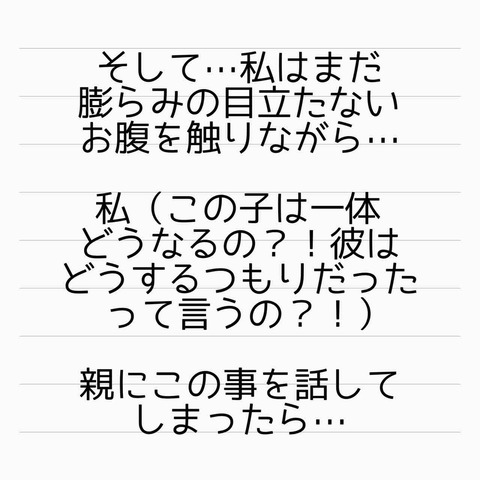 そして…私はまだ
膨らみの目立たない
お腹を触りながら…
私（この子は一体
どうなるの？！彼は
どうするつもりだった
って言うの？！）
親にこの事を話して
しまったら…